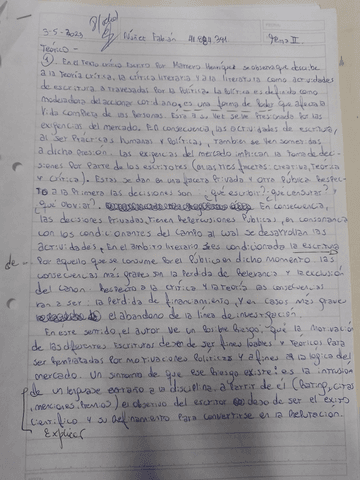 5-5-2023
Núñez Fabián
Teórico II
Teórico -
① En el texto único escrito por Marrero Henríquez se observa que describe
a la teoría crítica, la crítica literaria y a la literatura como actividades
de escritura atravesadas por la Política. La Política es definida como
moderadora del accionar cotidiano, es una forma de Poder que afecta la
Vida completa de las personas. Esta a su vez se ve Presionada por las
exigencias del mercado. En consecuencia, las actividades de escritura,
al ser Prácticas humanas y Políticas, también se ven sometidas
a dicha Presión. Las exigencias del mercado implican la toma de deci-
siones Por Parte de los escritores (en sus tres facetas: creativa, Teórica
y crítica). Estas se dan en una faceta Privada y otra Pública. Respec-
to a la Primera las decisiones son ¿qué escribir? ¿qué censurar? y
¿qué obviar? En consecuencia,
las decisiones Privadas, tienen repercusiones Públicas, en consonancia
con los condicionantes del campo al cual se desarrollan las
actividades. En el ámbito literario es condicionada la escritura
de - Por aquello que se consume Por el Público en dicho momento, las
consecuencias más graves son la Pérdida de Relevancia y la exclusión
del canon. Respecto a la crítica y la teoría las consecuencias
van a ser: la Pérdida de financiamiento, y en casos más graves
el abandono de la línea de investigación.
En este sentido, el autor ve un Posible riesgo, que la motivación
de las diferentes escrituras dejen de ser fines loables y teóricos Para
ser reemplazadas Por motivaciones Políticas y afines a la lógica del
mercado. Un síntoma de que ese riesgo existe: es la intrusión
de un lenguaje extraño a la disciplina, a partir de él (Rating, citas,
menciones, Premios) el objetivo del escritor dejó de ser el éxito
científico y su refinamiento para convertirse en la reputación.
Explicar